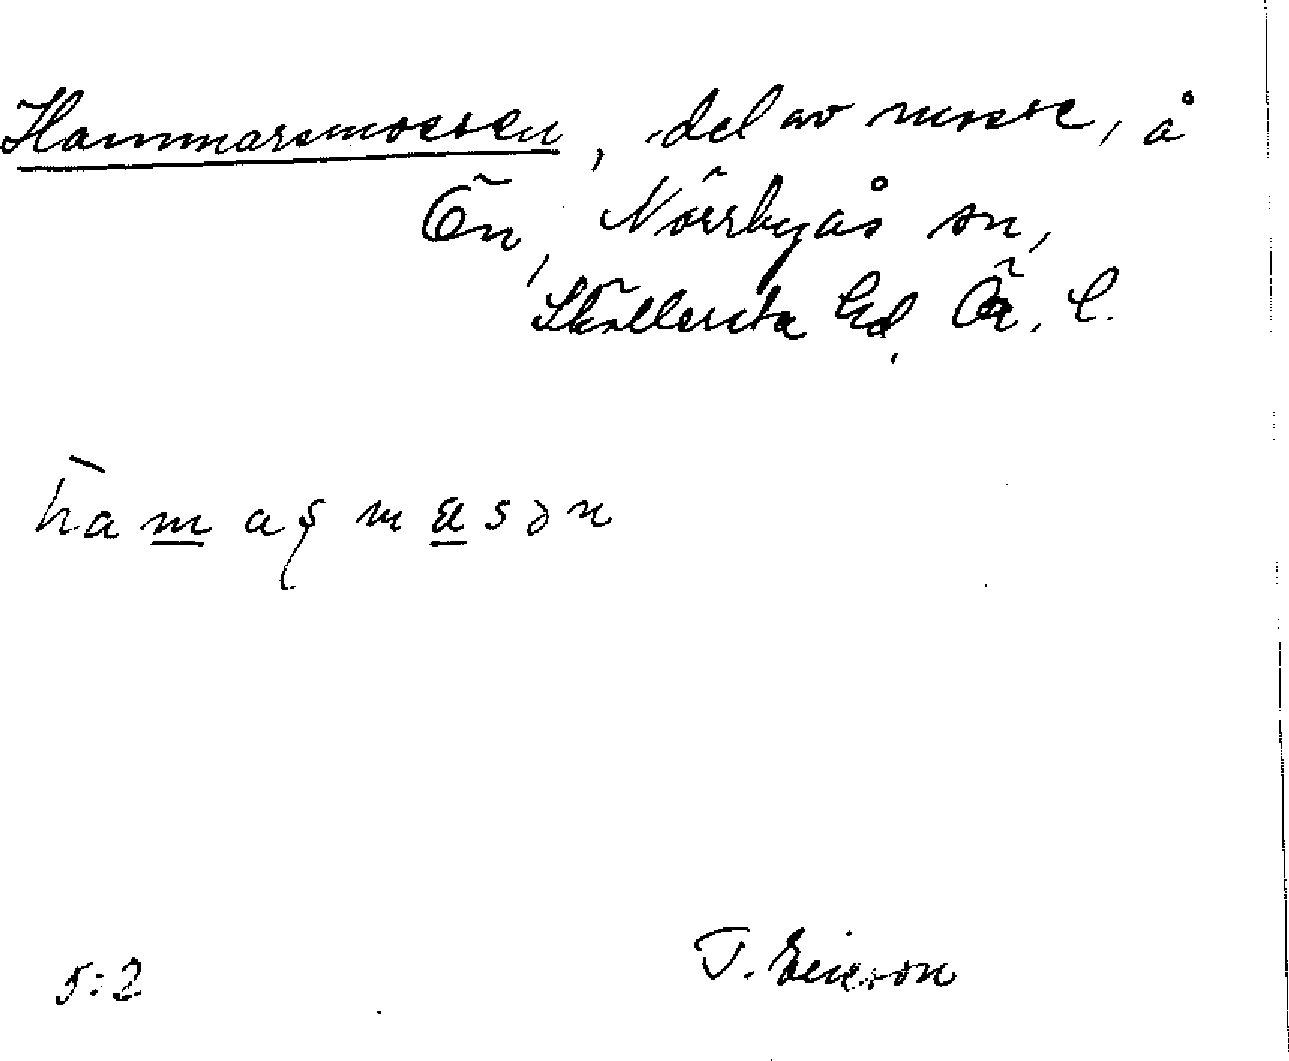 Hammarsmossen, del av mosse, å
Ön, Norrbyås sn,
Sköllersta hd, Ör. l.
hamaʂmasən
5:2
T. Ericson